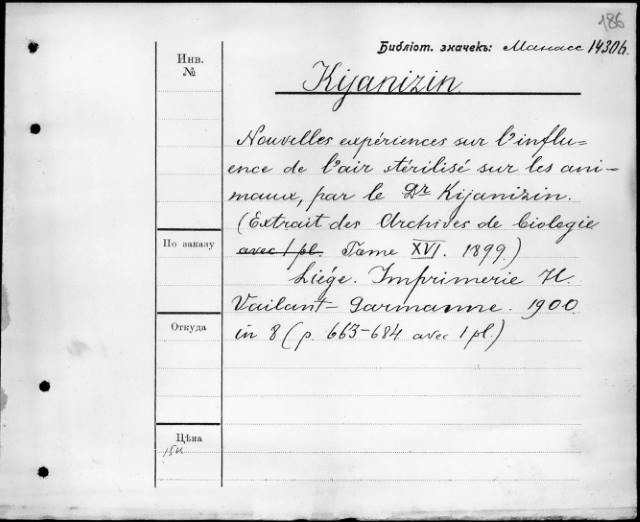 186
Библіот. значекъ: Манасс 1430б.
Инв.
№
Kijanizin
Nouvelles expériences sur l'influ=
ence de l'air stérilisé sur les ani-
maux, par le Dr Kijanizin.
(Extrait des Archives de biologie
По заказу
avec 1 pl. Tome XVI. 1899.)
Liége. Imprimerie H.
Vailant-Carmanne. 1900
Откуда
in 8 (p. 663-684 avec 1 pl.)
Цѣна
15к